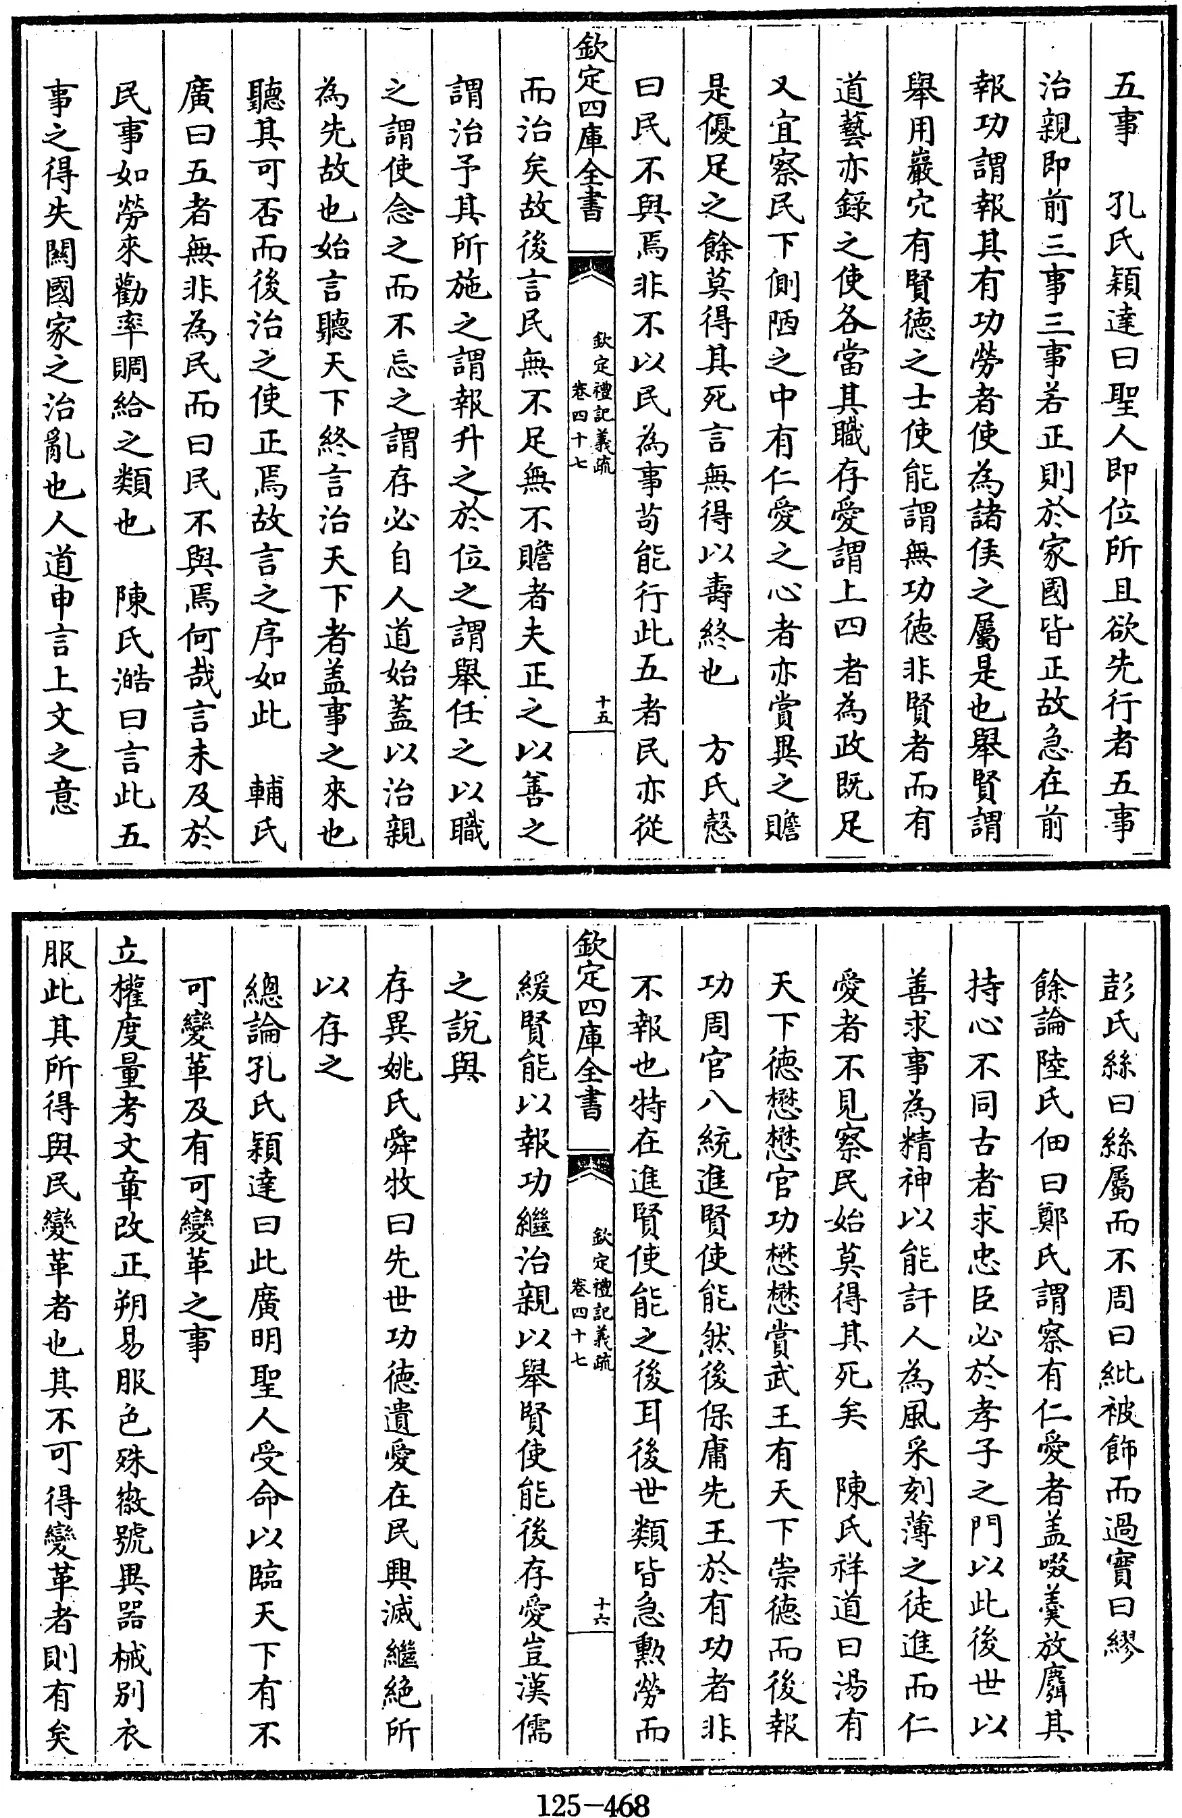 五事　孔氏穎達曰聖人即位所且欲先行者五事
治親即前三事三事若正則於家國皆正故急在前
報功謂報其有功勞者使為諸侯之屬是也舉賢謂
舉用巖穴有賢德之士使能謂無功德非賢者而有
道藝亦錄之使各當其職存愛謂上四者為政既足
又宜察民下側陋之中有仁愛之心者亦賞異之贍
是優足之餘莫得其死言無得以壽終也　方氏慤
曰民不與焉非不以民為事苟能行此五者民亦從
欽定四庫全書
欽定禮記義疏
卷四十七
十五
而治矣故後言民無不足無不贍者夫正之以善之
謂治予其所施之謂報升之於位之謂舉任之以職
之謂使念之而不忘之謂存必自人道始蓋以治親
為先故也始言聽天下終言治天下者蓋事之來也
聽其可否而後治之使正焉故言之序如此　輔氏
廣曰五者無非為民而曰民不與焉何哉言未及於
民事如勞來勸率賙給之類也　陳氏澔曰言此五
事之得失關國家之治亂也人道申言上文之意
彭氏絲曰絲屬而不周曰紕被飾而過實曰繆
餘論陸氏佃曰鄭氏謂察有仁愛者蓋啜羮放麛其
持心不同古者求忠臣必於孝子之門以此後世以
善求事為精神以能訐人為風采刻薄之徒進而仁
愛者不見察民始莫得其死矣　陳氏祥道曰湯有
天下德懋懋官功懋懋賞武王有天下崇德而後報
功周官八統進賢使能然後保庸先王於有功者非
不報也特在進賢使能之後耳後世類皆急勲勞而
欽定四庫全書
欽定禮記義疏
卷四十七
十六
緩賢能以報功繼治親以舉賢使能後存愛豈漢儒
之說與
存異姚氏舜牧曰先世功德遺愛在民興滅繼絶所
以存之
總論孔氏穎達曰此廣明聖人受命以臨天下有不
可變革及有可變革之事
立權度量考文章改正朔易服色殊徽號異器械别衣
服此其所得與民變革者也其不可得變革者則有矣
125-468